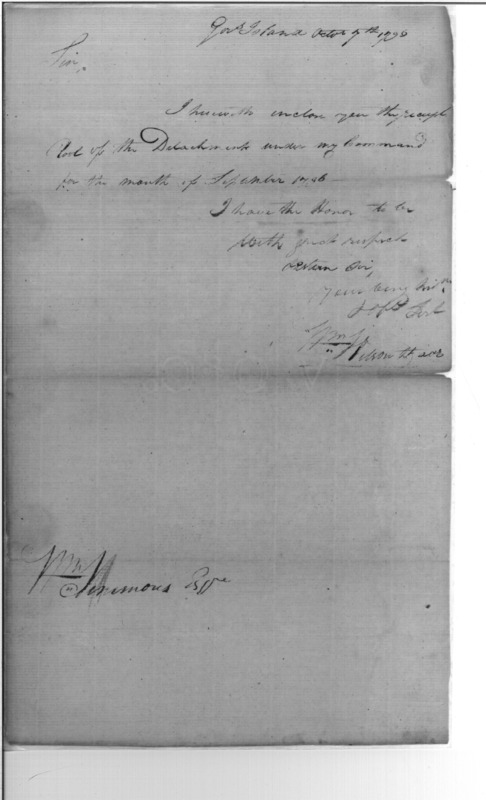 Govr Island Octob 7th 1798
Sir,
I herewith inclose you the receipt
Roll of the Detachments under my Command
for the month of September 1798
I have the Honor to be
with great respect
Your very
Wm Wilson
Wm Simmons Esqre